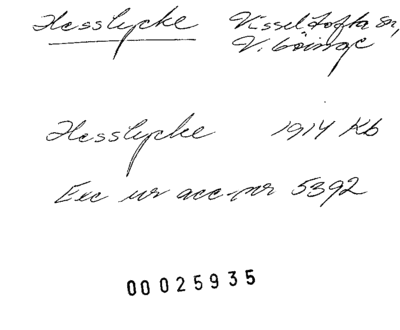 Hesslycke Visseltofta sn,
V. Göinge
Hesslycke 1914 Kb
Exc ur acc-nr 5392
00025935